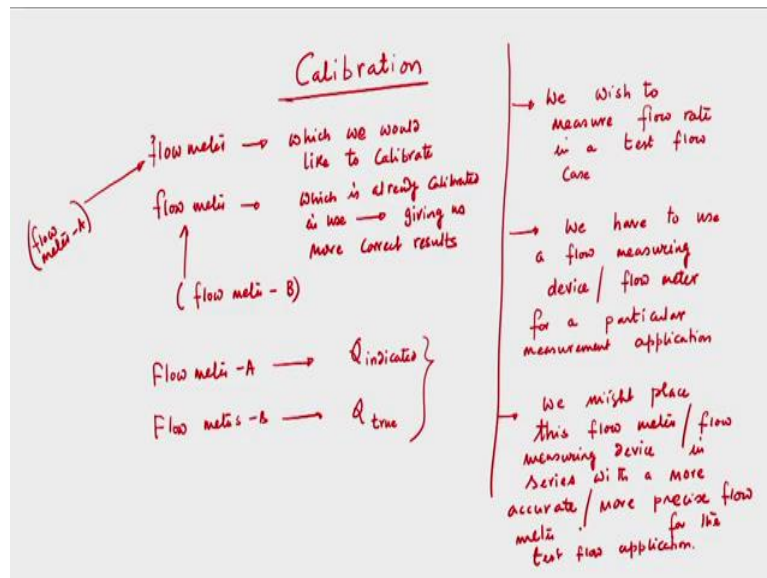 Calibration
flow meter → which we would
like to Calibrate
(flow meter-A)
flow meter → which is already Calibrated
in use → giving us
more correct results
(flow meter - B)
Flow meter -A → Q indicated }
Flow meter -B → Q true
→ We wish to
measure flow rate
in a test flow
case
→ We have to use
a flow measuring
device / flow meter
for a particular
measurement application
→ We might place
this flow meter / flow
measuring device in
series with a more
accurate / more precise flow
meter for the
test flow application.